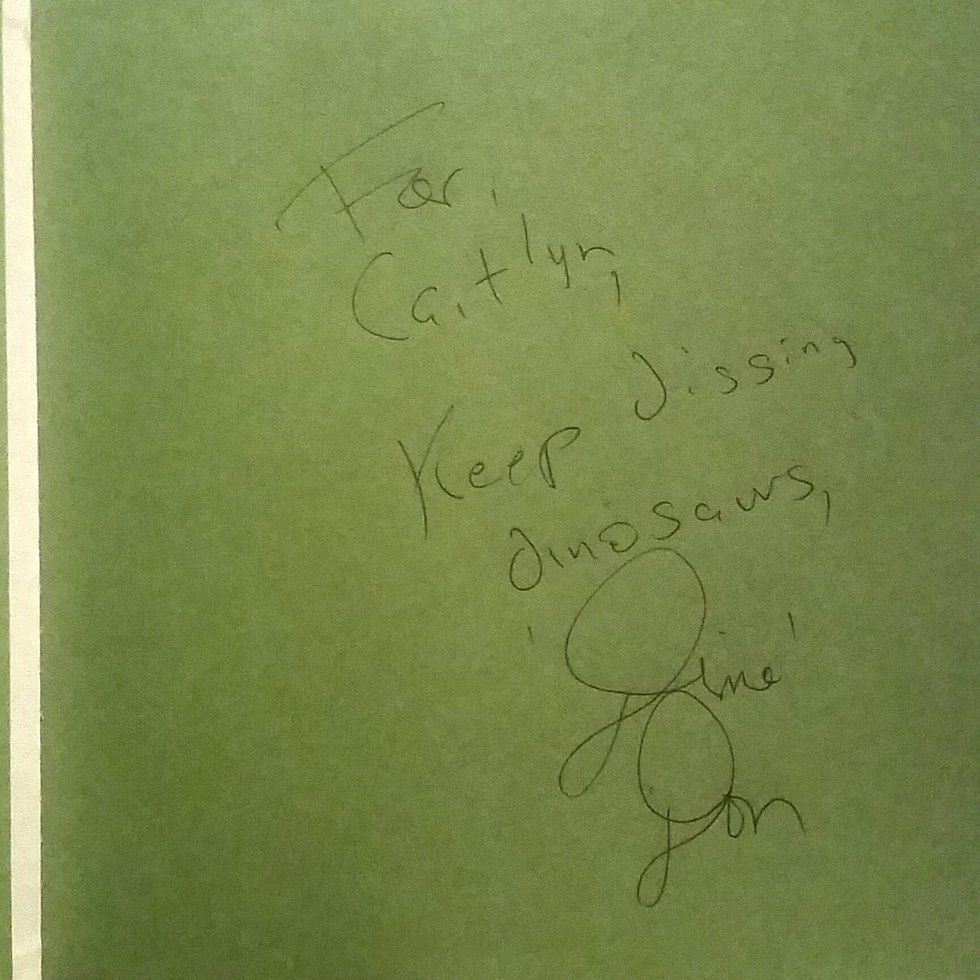 For,
Caitlyn,
Keep dissing
dinosaurs,
'Dino'
Don